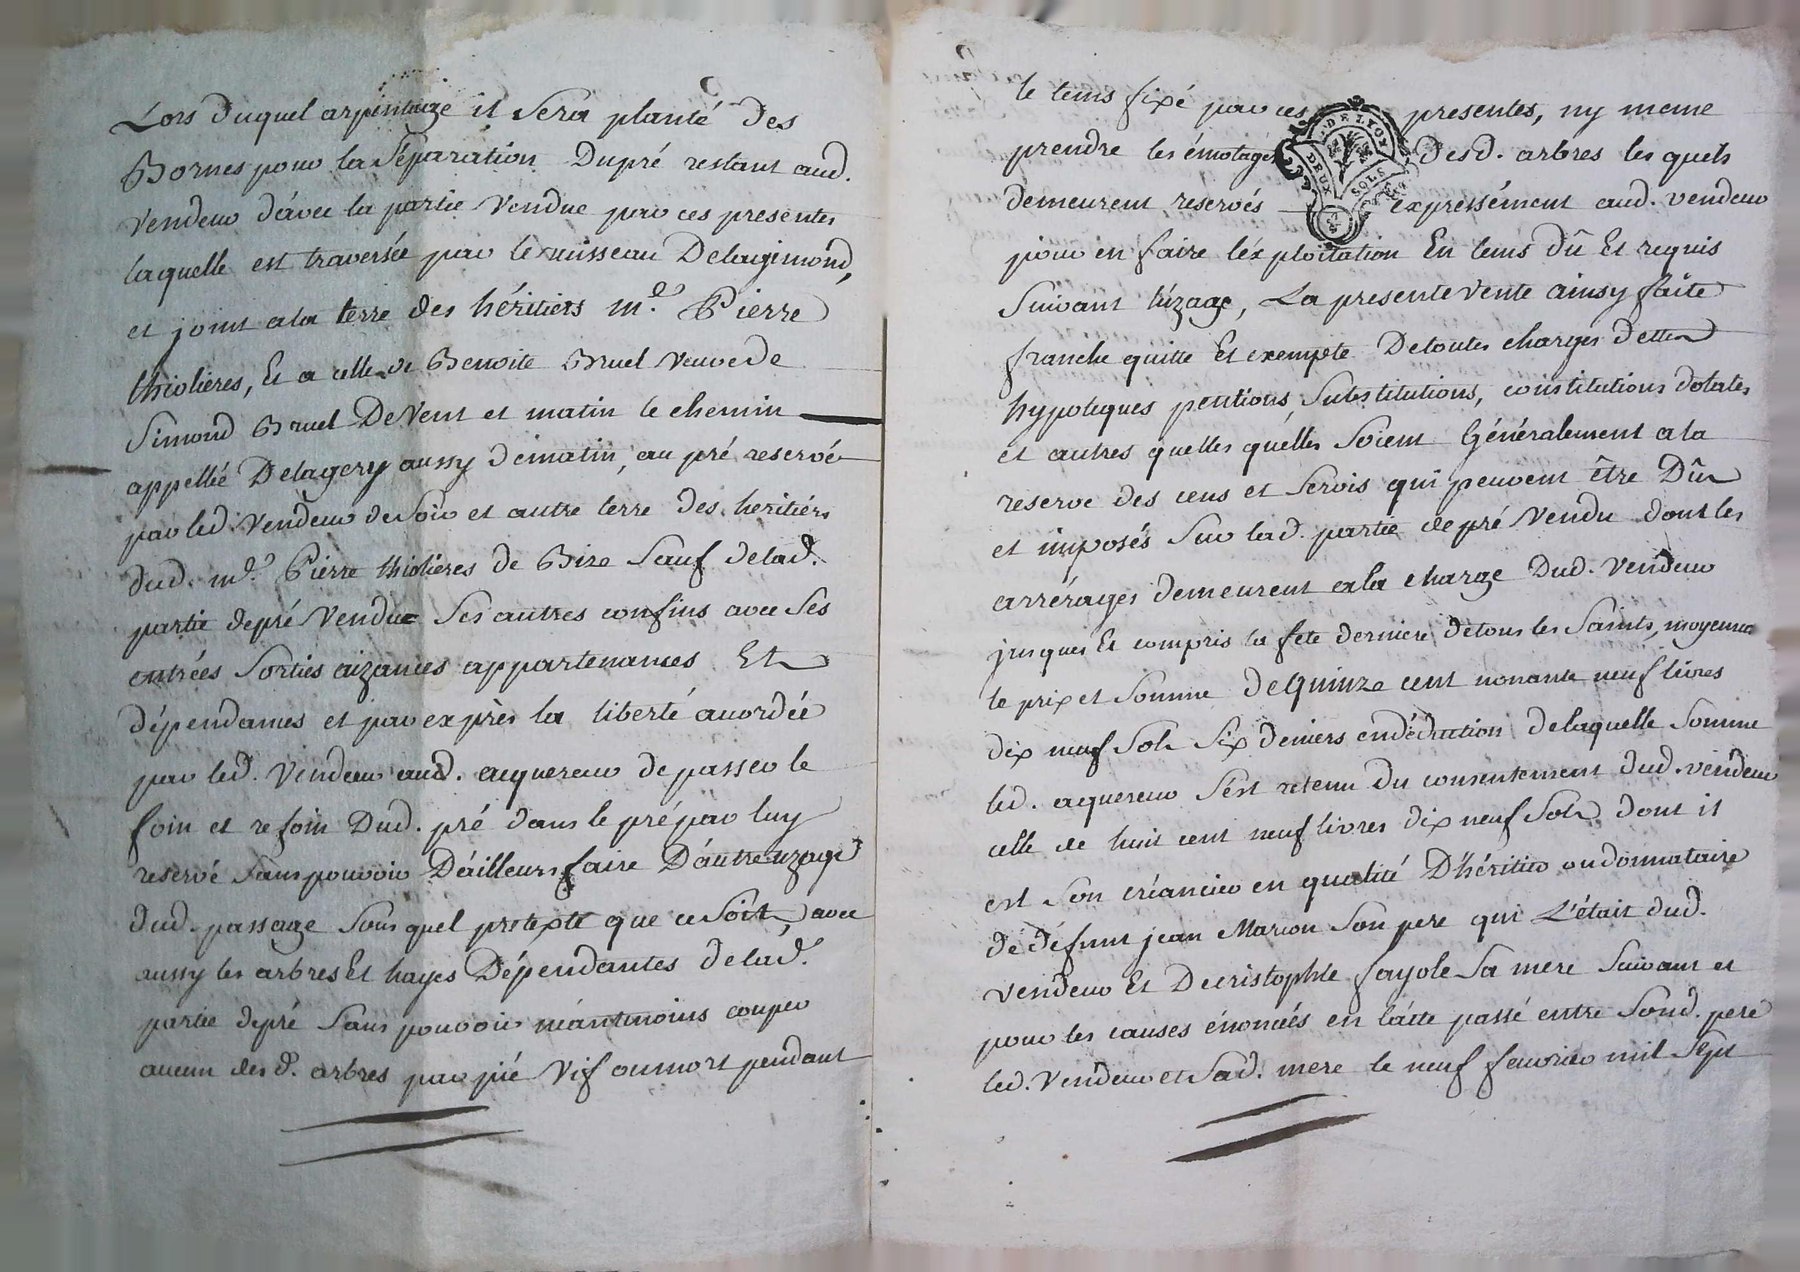 Lors duquel arpentage il Sera planté des
Bornes pour la Séparation Dupré restant aud.
Vendeur d'avec la partie Vendue par ces presentes
laquelle est traversée par le ruisseau Delagimond,
et joint ala terre des héritiers m.e Pierre
thiolieres, Et a celle de Benoite Bruel Veuve de
Simond Bruel De Vent et matin le chemin
appellé Delagery aussy dematin, au pré reservé
par led. Vendeur de Soir et autre terre des heritiérs
dud. m.e Pierre thiolieres de Bize Sauf delad.
partie depré Vendue Ses autres confins avec Ses
entrées Sorties aizances appartenances Et
dépendances et par exprès la liberté accordée
par led. Vendeur aud. acquereur de passer le
foin et refoin Dud. pré dans le pré par luy
reservé Sans pouvoir D'ailleurs faire D'autre uzage
dud. passage Sous quel pretexte que ce Soit, avec
aussy les arbres Et hayes Dépendantes delad.
partie depré Sans pouvoir néantmoins couper
aucun desd. arbres par pié Vif ou mort pendant
le tems fixé par ces presentes, ny meme
prendre les émotages desd. arbres les quels
demeurent reservés expressément aud. vendeur
pour en faire l'éxploitation En tems dû Et requis
Suivant l'úzage, La presente vente ainsy faite
franche quitte Et exempte Detoutes charges dettes
hypoteques pentions, Substitutions, constitutions dotales
et autres quelles quélles Soient Généralement ala
reserve des cens et Servis qui peuvent être Dûs
et imposés Sur lad. partie depré Vendu dont les
arrérages demeurent ala charge Dud. Vendeur
jusques Et compris la fete derniere detous les Saints, moyennant
le prix et Somme deQuinze cent nonante neuf livres
dix neuf Sols Six deniers endéduction delaquelle Somme
led. aquereur S'est retenu du consentement dud. vendeur
celle de huit cent neuf livres dix neuf Sols dont il
est Son créancier en qualité D'héritier ou donnataire
de défunt jean Marcon Son pere qui L'était dud.
Vendeur Et De cristophle fayole Sa mere Suivant et
pour les causes énoncées en l'acte passé entre Sond. pere
led. Vendeur et Sad. mere le neuf fevrier mil Sept
DE LYON
DEUX SOLS